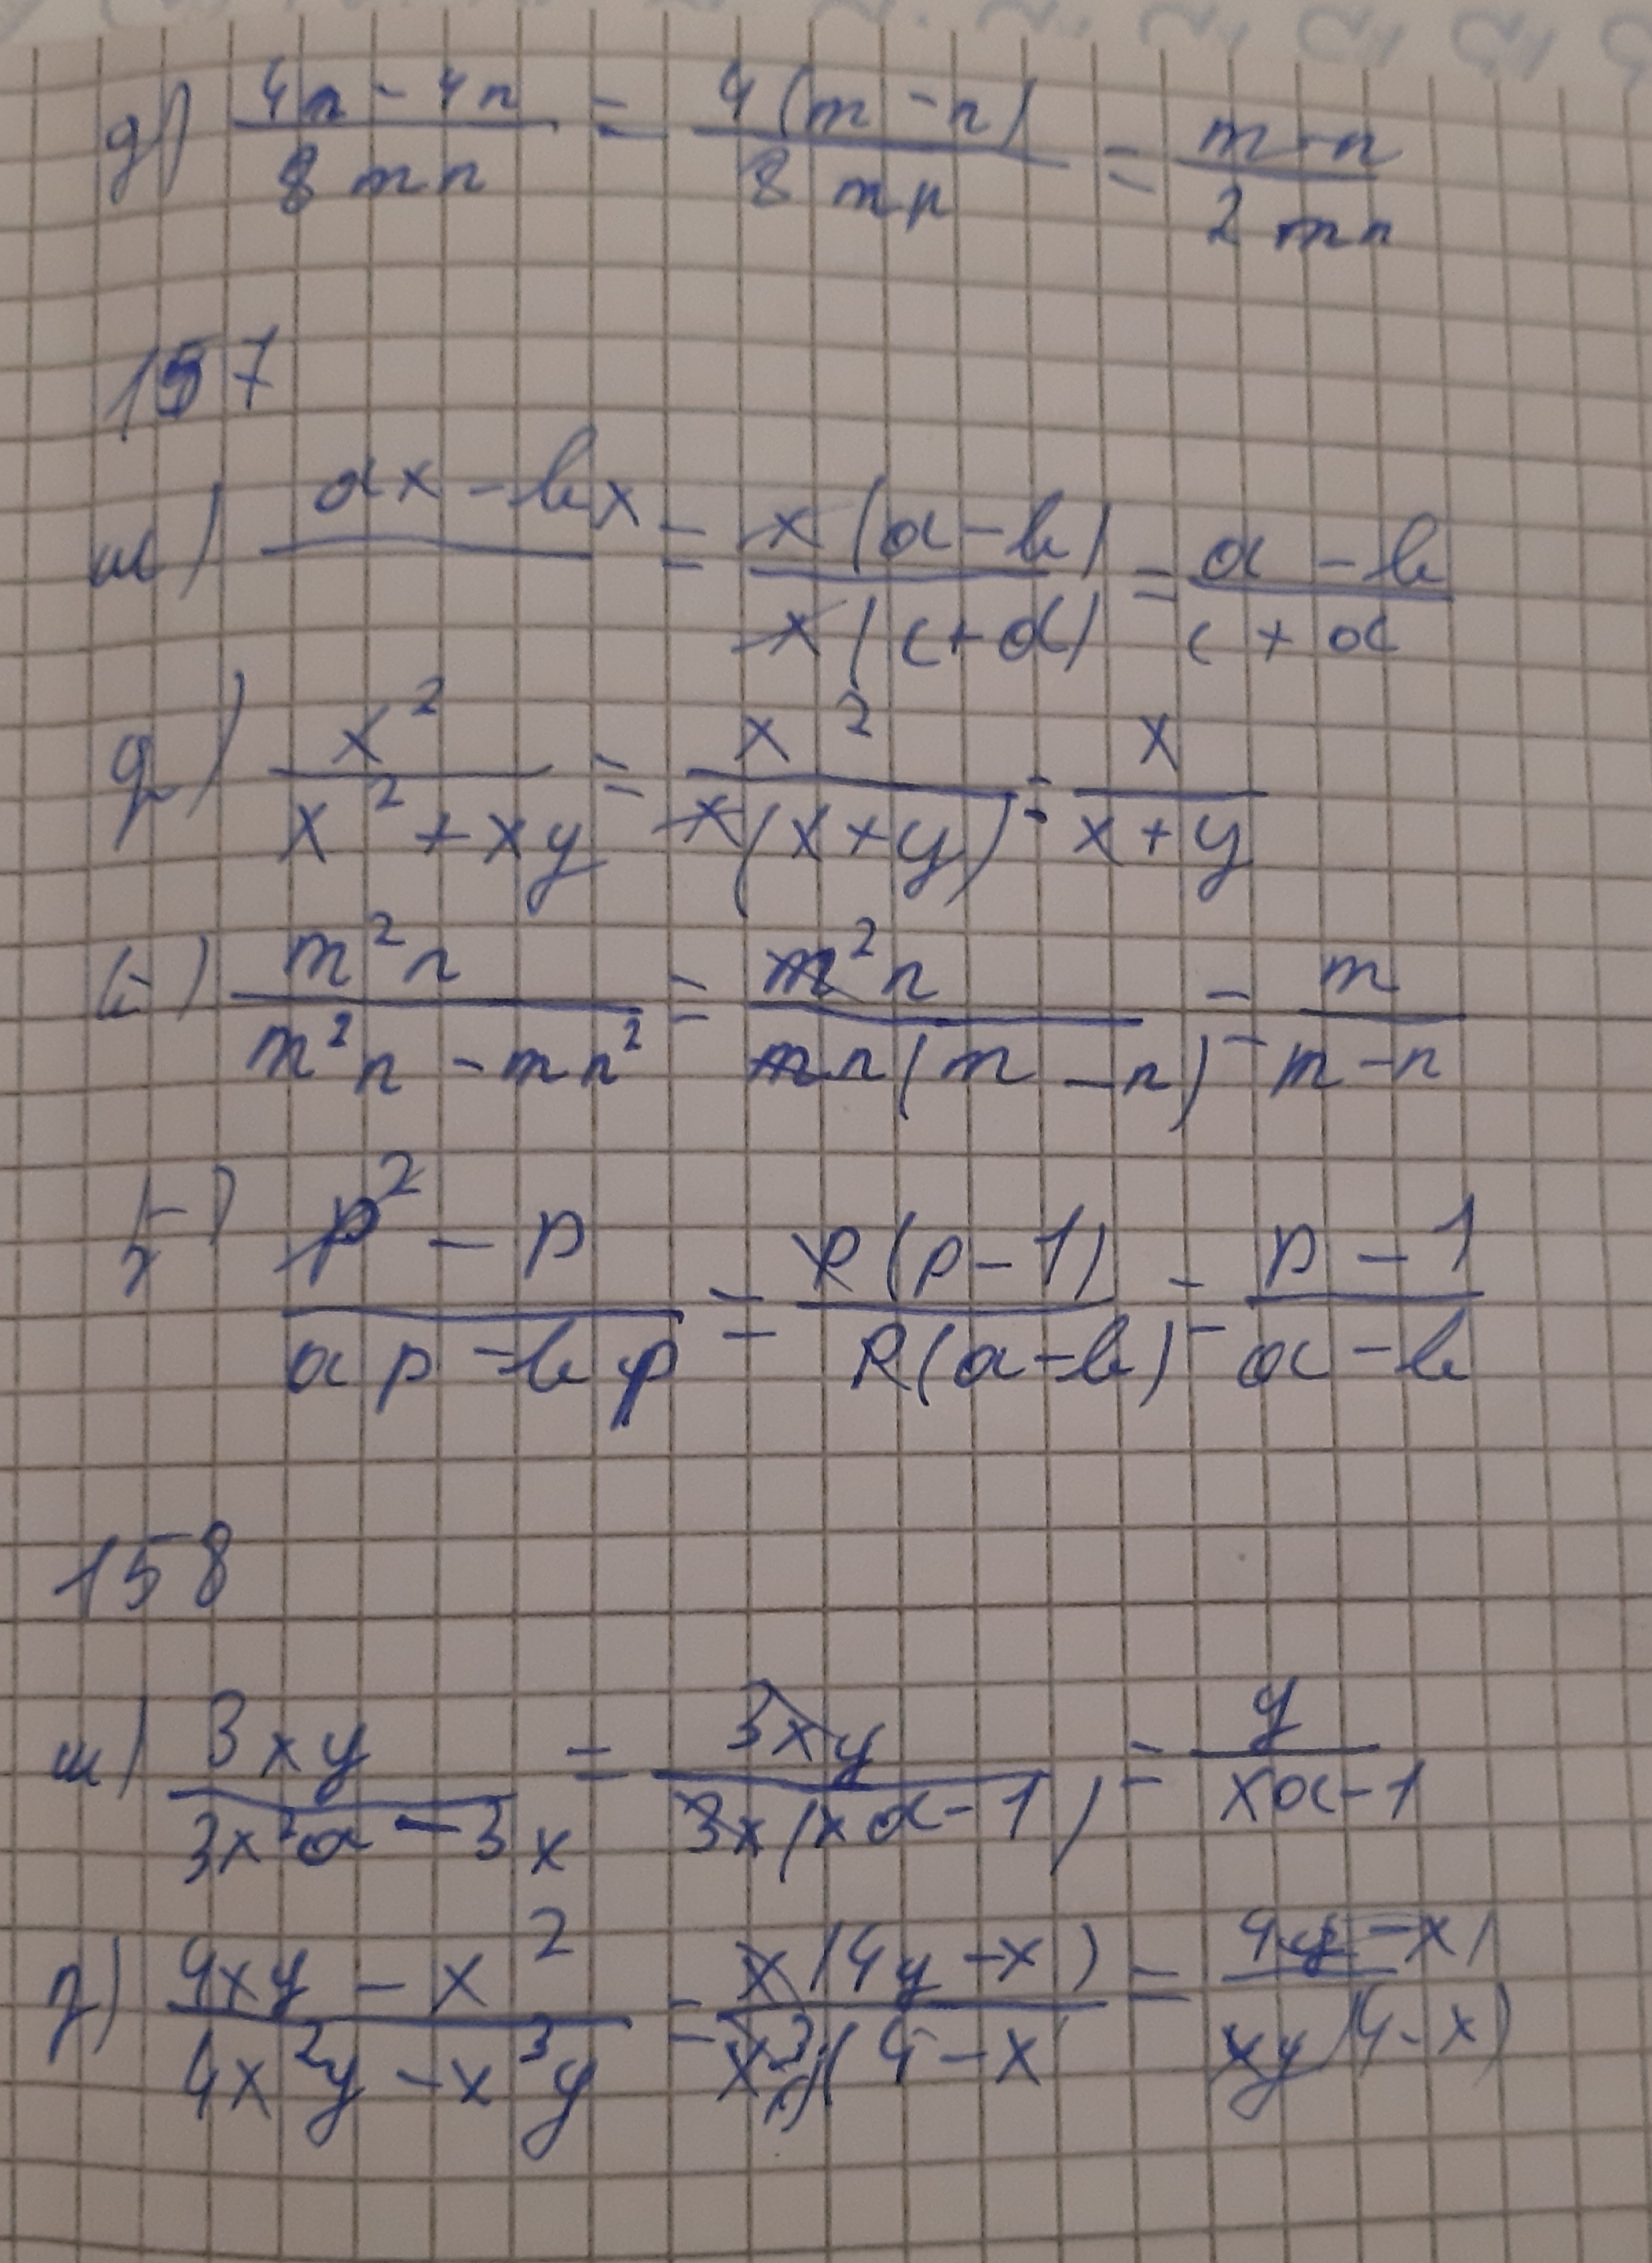 g) (4n - 4n)/(8mn) = (4(m - n))/(8mn) = (m - n)/(2mn)
157
ա) (ax - bx)/ = (x(a - b))/(x(c + d)) = (a - b)/(c + d)
գ) x²/(x² + xy) = x²/(x(x + y)) = x/(x + y)
ե) m²n/(m²n - mn²) = m²n/(mn(m - n)) = m/(m - n)
(p² - p)/(ap - bp) = (p(p - 1))/(p(a - b)) = (p - 1)/(a - b)
158
ա) 3xy/(3x²a - 3x) = 3xy/(3x(xa - 1)) = y/(xa - 1)
գ) (4xy - x²)/(4x²y - x³y) = (x(4y - x))/(x²y(4 - x) = (4y - x)/(xy(4 - x))